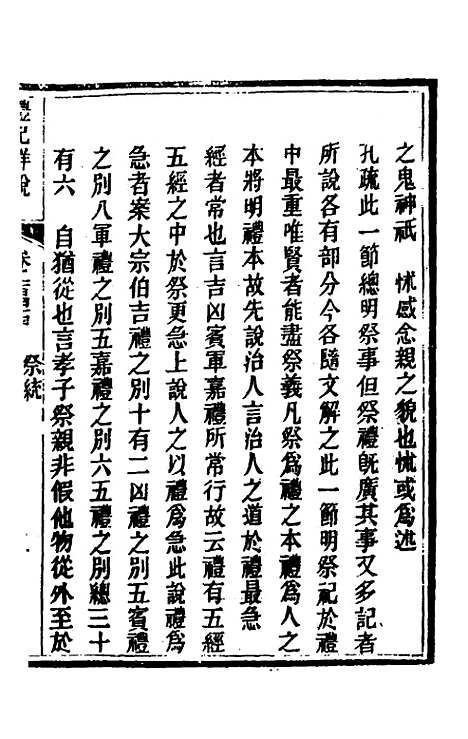 之鬼神祇　怵感念親之貌也怵或爲述
孔疏此一節總明祭事但祭禮旣廣其事又多記者
所說各有部分今各隨文解之此一節明祭祀於禮
中最重唯賢者能盡祭義凡祭爲禮之本禮爲人之
本將明禮本故先說治人言治人之道於禮最急
經者常也言吉凶賓軍嘉禮所常行故云禮有五經
五經之中於祭更急上說人之以禮爲急此說禮爲
急者案大宗伯吉禮之別十有二凶禮之別五賓禮
之別八軍禮之別五嘉禮之別六五禮之別總三十
有六　自猶從也言孝子祭親非假他物從外至於
禮記詳說
祭統